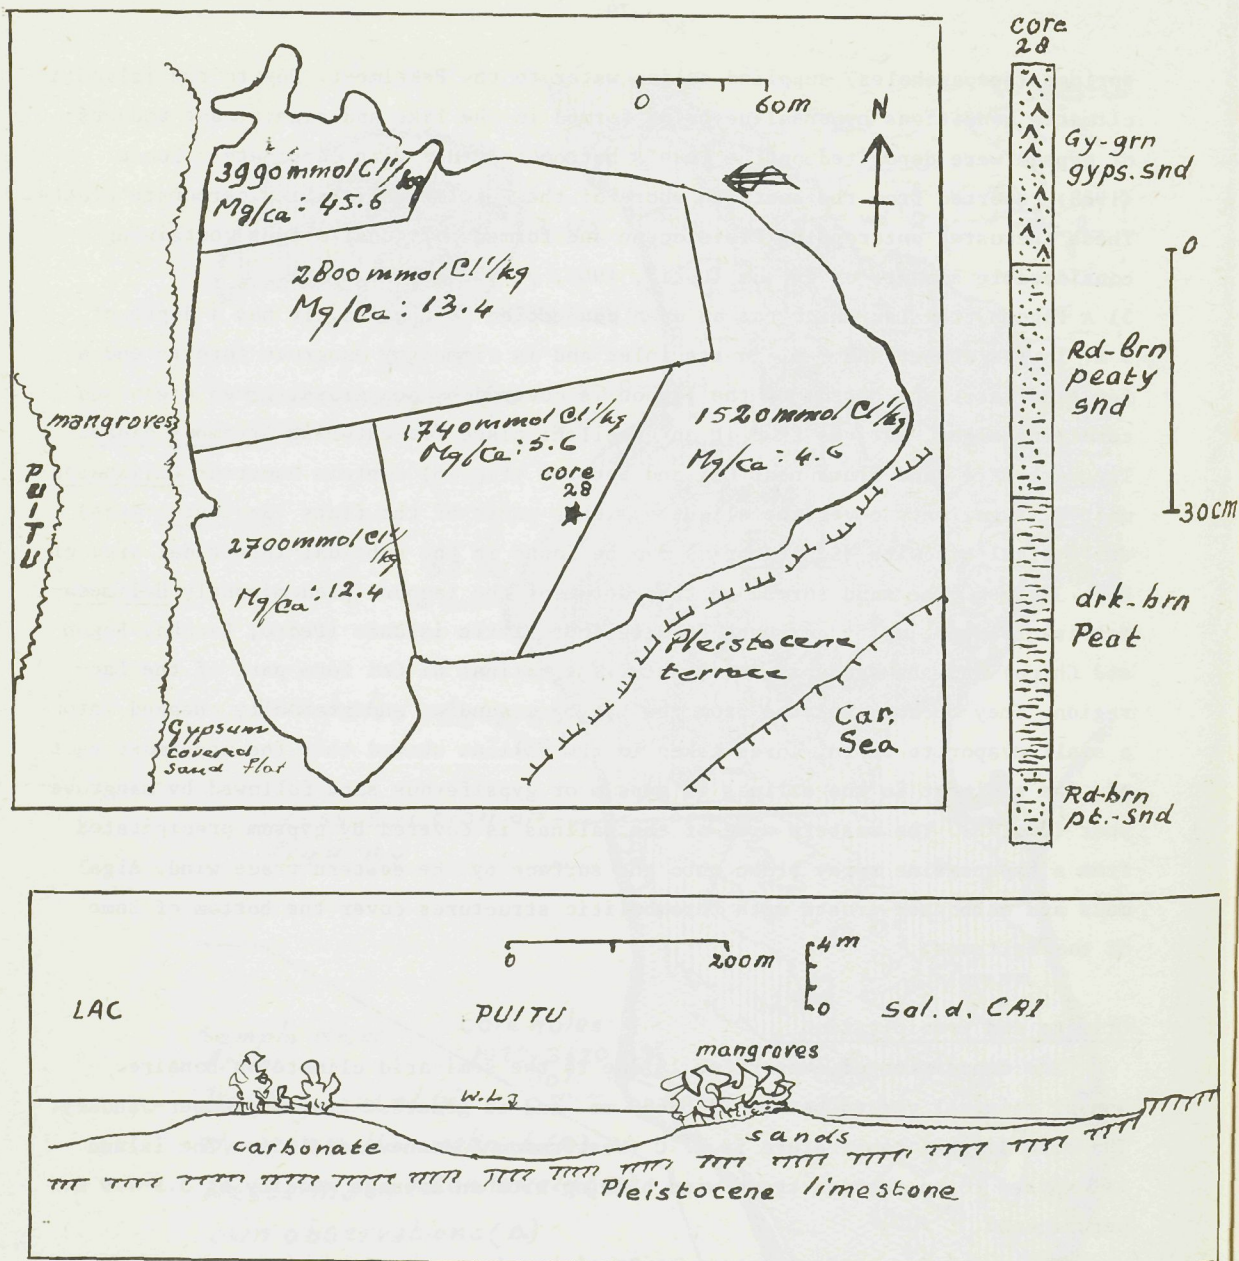 0 60m
N
3990 mmol Cl'/kg
Mg/Ca: 45.6
2800 mmol Cl'/kg
Mg/Ca: 13.4
mangroves
1740 mmol Cl'/kg
Mg/Ca: 5.6
core
28
1520 mmol Cl'/kg
Mg/Ca: 4.6
PUITU
2700 mmol Cl'/kg
Mg/Ca: 12.4
Gypsum
covered
sand flat
Pleistocene
terrace
Car.
Sea
core
28
Gy-grn
gyps. snd
0
Rd-brn
peaty
snd
30cm
drk-brn
Peat
Rd-brn
pt.-snd
0 200m
4m
0
LAC PUITU Sal. d. CAI
mangroves
W.L.
carbonate sands
Pleistocene limestone